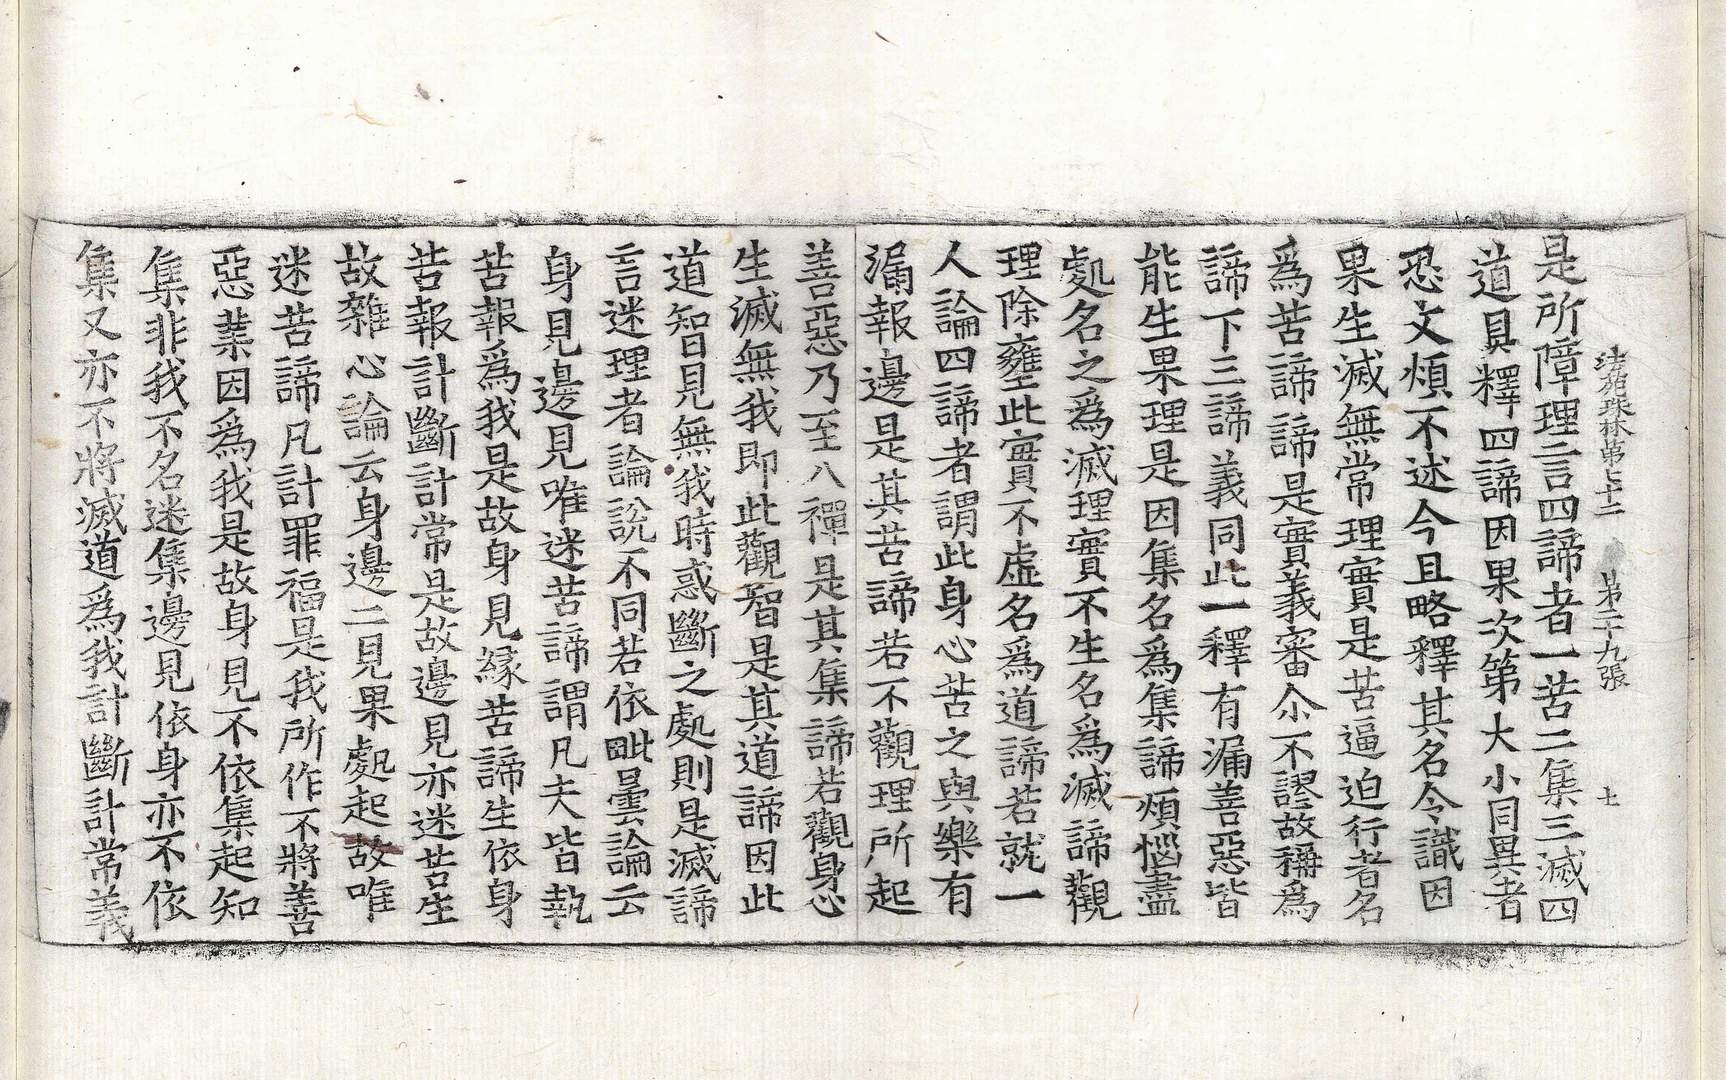 法苑珠林第七十二　第二十九張　七
是所障理言四諦者一苦二集三滅四
道具釋四諦因果次第大小同異者
恐文煩不述今且略釋其名令識因
果生滅無常理實是苦逼迫行者名
爲苦諦諦是實義審尒不謬故稱爲
諦下三諦義同此一釋有漏善惡皆
能生果理是因集名爲集諦煩惱盡
處名之爲滅理實不生名爲滅諦觀
理除壅此實不虛名爲道諦若就一
人論四諦者謂此身心苦之與樂有
漏報邊是其苦諦若不觀理所起
善惡乃至八禪是其集諦若觀身心
生滅無我即此觀智是其道諦因此
道智見無我時惑斷之處則是滅諦
言迷理者論說不同若依毗曇論云
身見邊見唯迷苦諦謂凡夫皆執
苦報爲我是故身見緣苦諦生依身
苦報計斷計常是故邊見亦迷苦生
故雜心論云身邊二見果處起故唯
迷苦諦凡計罪福是我所作不將善
惡業因爲我是故身見不依集起知
集非我不名迷集邊見依身亦不依
集又亦不將滅道爲我計斷計常義